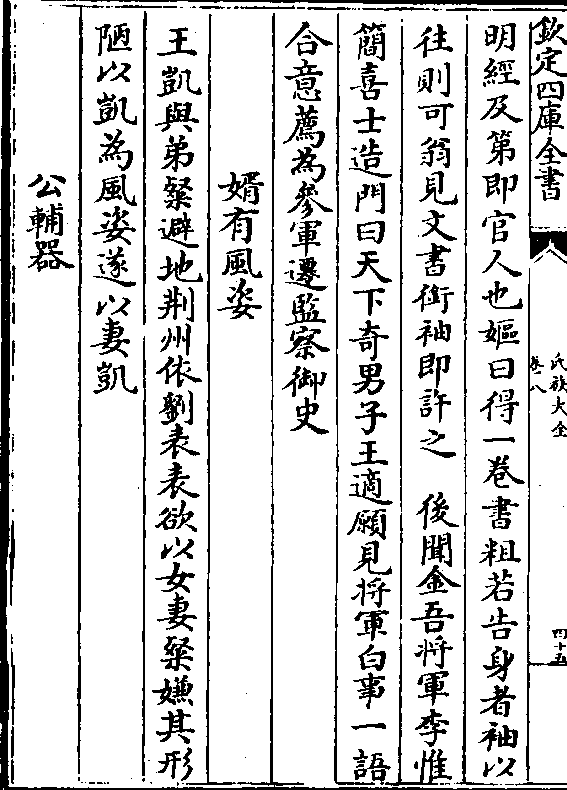 欽定四庫全書
氏族大全
卷八
四十五
明經及第即官人也嫗曰得一卷書粗若告身者袖以
往則可翁見文書銜袖即許之　後聞金吾將軍李惟
簡喜士造門曰天下奇男子王適願見將軍白事一語
合意薦為參軍遷監察御史
婿有風姿
王凱與弟粲避地荆州依劉表表欲以女妻粲嫌其形
陋以凱為風姿遂以妻凱
公輔器